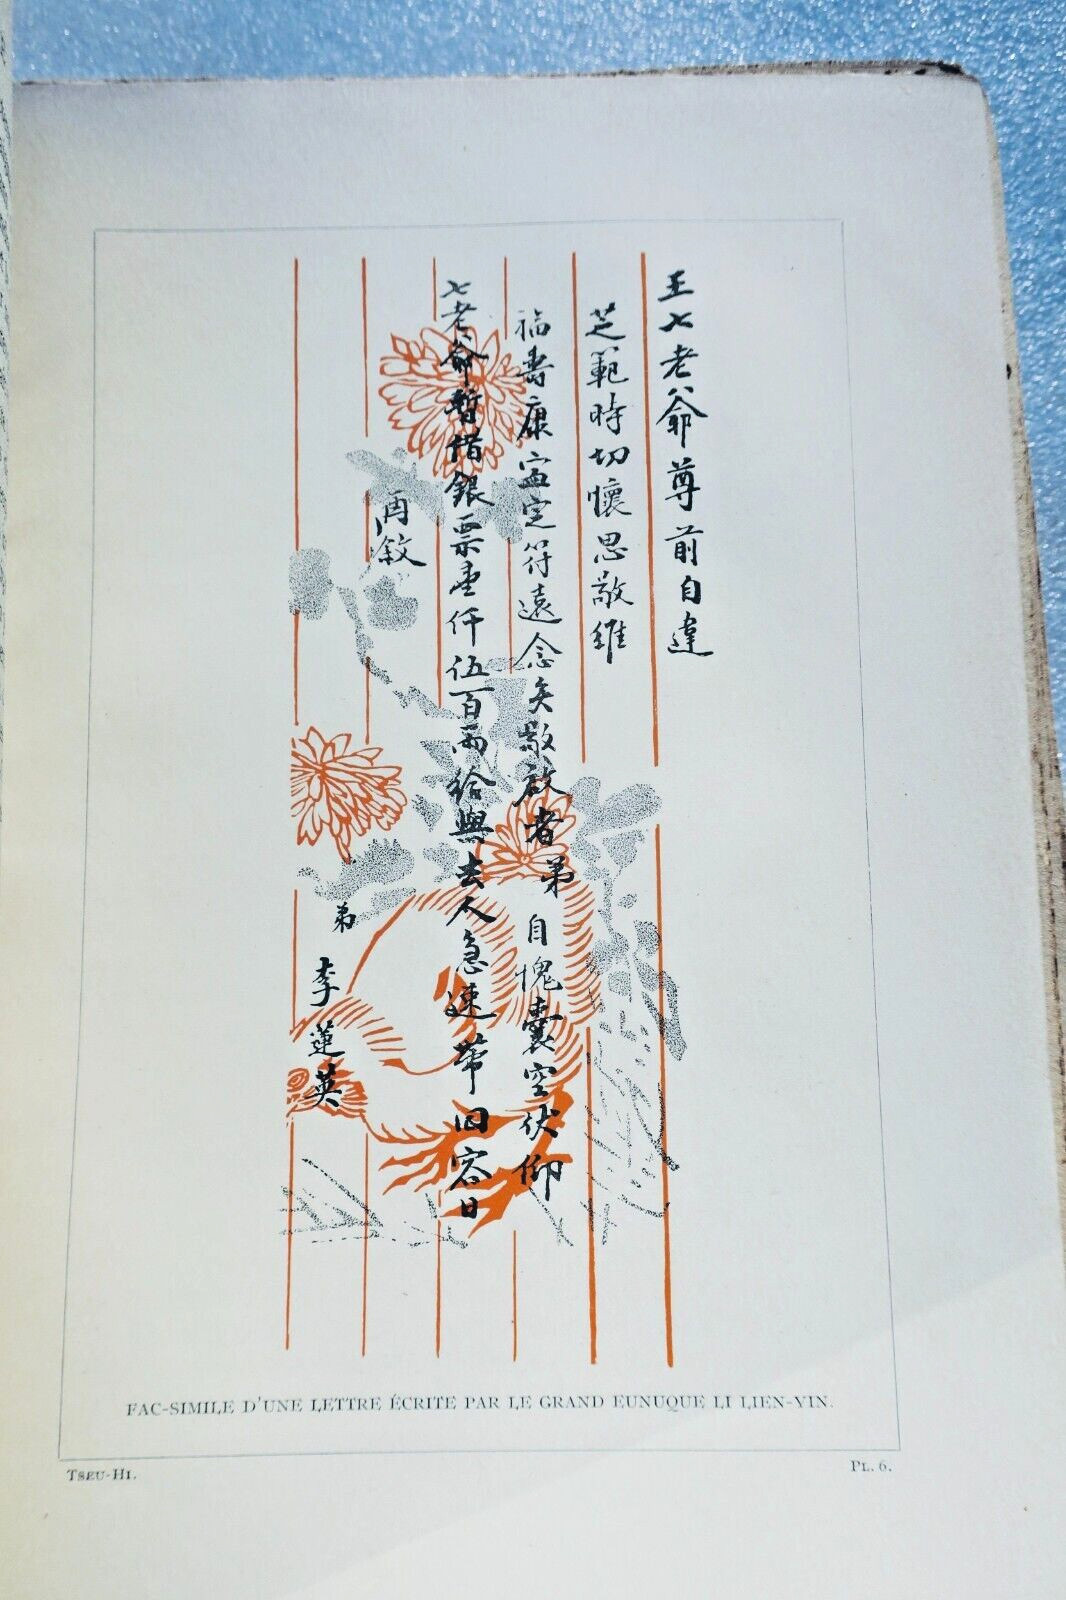 王七老爺尊前自違
芝範時切懷思敬維
福壽康寧定符遠念矣敬啟者弟自愧囊空伏仰
七老爺暫借銀票壹仟伍百兩給與去人急速帶回容日
再敘
弟李蓮英
FAC-SIMILE D'UNE LETTRE ÉCRITE PAR LE GRAND EUNUQUE LI LIEN-YIN.
TSEU-HI.
PL. 6.